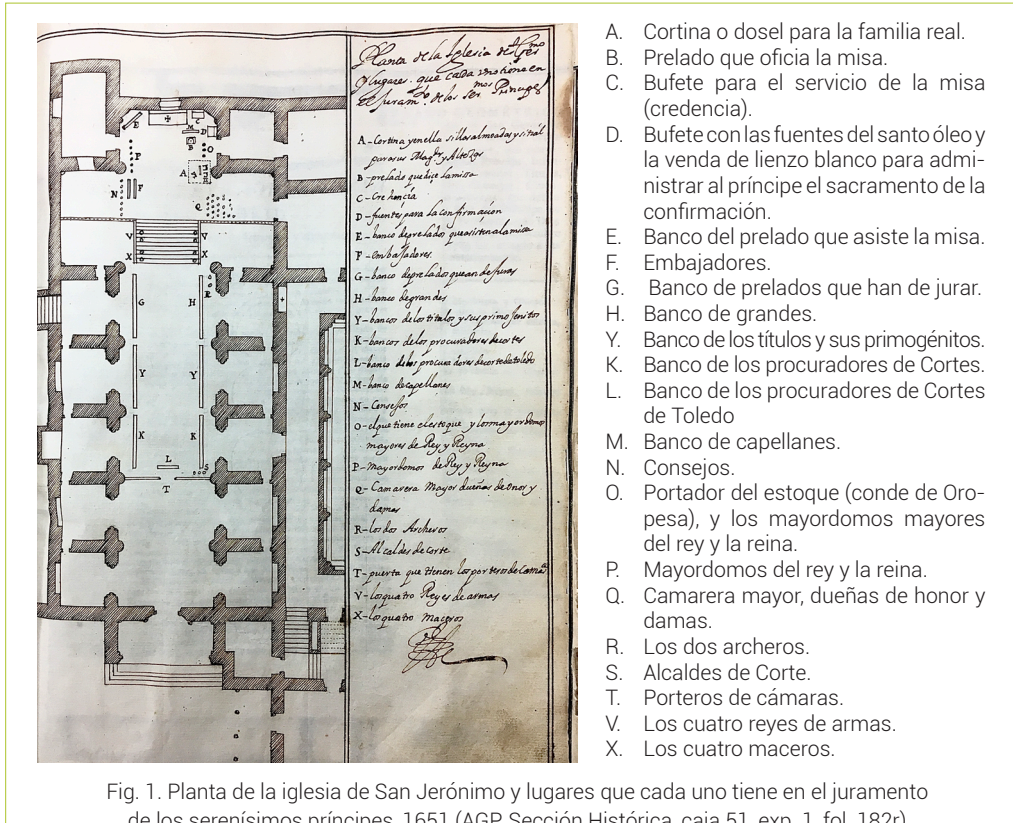 Planta de la Iglesia de S. Ger.mo
y lugares. que cada uno tiene en
el juram.to de los ser.mos Principes
A - Cortina y en ella sillas almoadas y sitial
para sus Mag.des y Altezas
B - prelado que dice la missa
C - Crehencia
D - fuentes para la confirmacion
E - banco de prelados que asisten a la missa
F - Embassadores.
G - banco de prelados que an de jurar
H - banco de grandes
Y - bancos de los titulos y sus primojenitos
K - bancos de los procuradores de cortes
L - banco de los procuradores de corte de toledo
M - banco de capellanes
N - Consejos
O - el que tiene el estoque y los mayordomos
mayores de Rey y Reyna
P - Mayordomos de Rey y Reyna
Q - Camarera Mayor dueñas de onor y
damas
R - los dos Archeros
S - Alcaldes de corte
T - puerta que tienen los porteros de Camara
V - los quatro Reyes de armas
X - los quatro maceros
E
C
M
D
B
P
O
A
N
F
Q
V
V
X
X
R
G
H
Y
Y
K
K
L
S
T
A. Cortina o dosel para la familia real.
B. Prelado que oficia la misa.
C. Bufete para el servicio de la misa
(credencia).
D. Bufete con las fuentes del santo óleo y
la venda de lienzo blanco para admi-
nistrar al príncipe el sacramento de la
confirmación.
E. Banco del prelado que asiste la misa.
F. Embajadores.
G. Banco de prelados que han de jurar.
H. Banco de grandes.
Y. Banco de los títulos y sus primogénitos.
K. Banco de los procuradores de Cortes.
L. Banco de los procuradores de Cortes
de Toledo
M. Banco de capellanes.
N. Consejos.
O. Portador del estoque (conde de Oro-
pesa), y los mayordomos mayores
del rey y la reina.
P. Mayordomos del rey y la reina.
Q. Camarera mayor, dueñas de honor y
damas.
R. Los dos archeros.
S. Alcaldes de Corte.
T. Porteros de cámaras.
V. Los cuatro reyes de armas.
X. Los cuatro maceros.
Fig. 1. Planta de la iglesia de San Jerónimo y lugares que cada uno tiene en el juramento
de los serenísimos príncipes, 1651 (AGP, Sección Histórica, caja 51, exp. 1, fol. 182r)